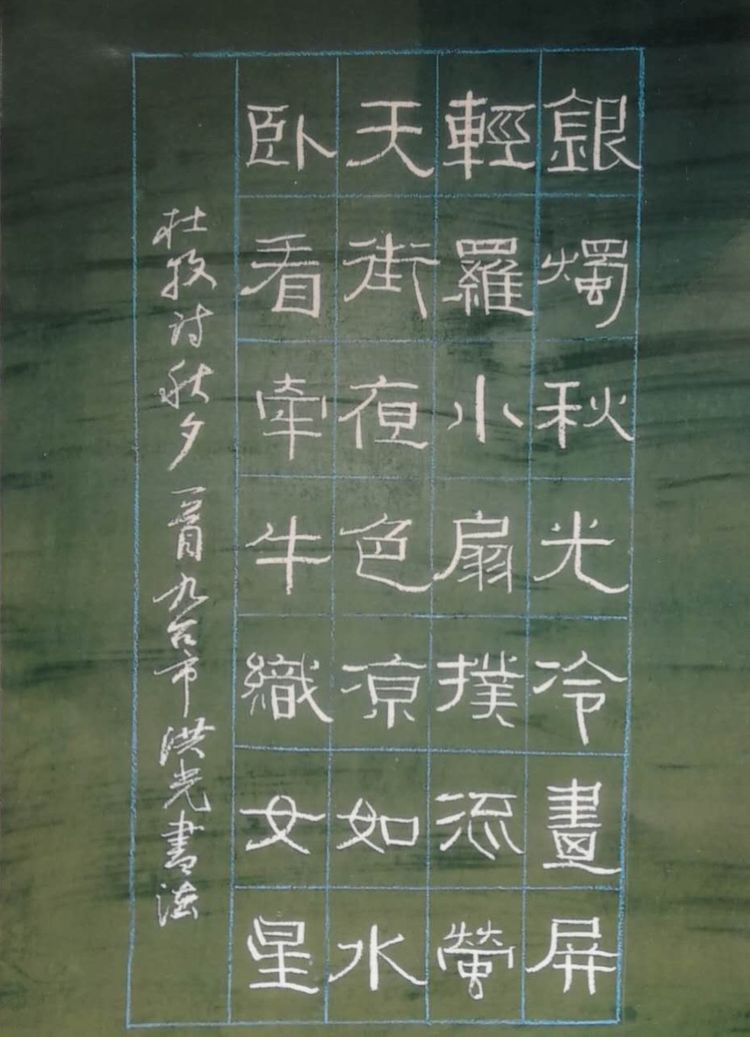 銀燭秋光冷畫屏
輕羅小扇撲流螢
天街夜色凉如水
卧看牽牛織女星
杜牧诗秋夕一首九台市洪光書法